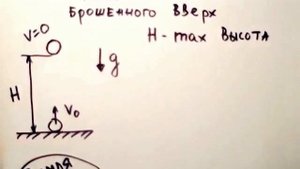 Брошенного вверх
H - max высота
V=0
g
H
V₀